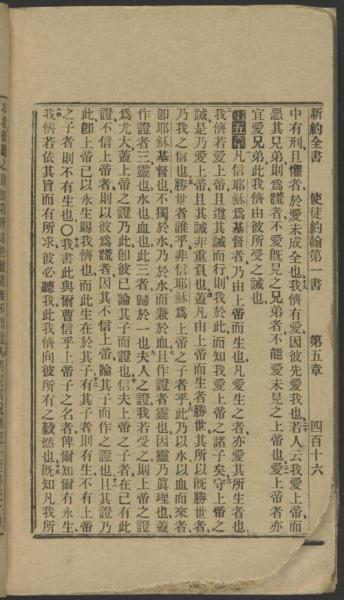 新約全書　使徒約翰第一書　第五章　四百十六
中有刑且懼者於愛未成全也我儕有愛因彼先愛我也若人云我愛上帝而
惡其兄弟則爲謊者不愛旣見之兄弟者不能愛未見之上帝也愛上帝者亦
宜愛兄弟此我儕由彼所受之誡也
第五章凡信耶穌爲基督者乃由上帝而生也凡愛生之者亦愛其所生者也
我儕若愛上帝且遵其誡而行則我於此而知我愛上帝之諸子矣守上帝之
誡是乃愛上帝且其誡非重負也蓋凡由上帝而生者勝世其所以旣勝世者
乃我之信也勝世者誰乎非信耶穌爲上帝之子者乎此乃以水以血而來者
卽耶穌基督也不獨於水乃於水而兼於血且作證者靈也因靈乃眞理也蓋
作證者三靈也水也血也此三者歸於一也夫人之證我若受之則上帝之證
爲尤大蓋上帝之證乃此卽彼已論其子而證也信夫上帝之子者在己有此
證不信上帝者則以彼爲謊者因其不信上帝論其子而作之證也且其證乃
此卽上帝已以永生賜我儕也而此生在於其子有其子者則有生不有上帝
之子者則不有生也〇我書此與爾曹信乎上帝子之名者俾爾知爾有永生
我儕若依其旨而有所求彼必聽我此我儕向彼所有之毅然也旣知凡我所